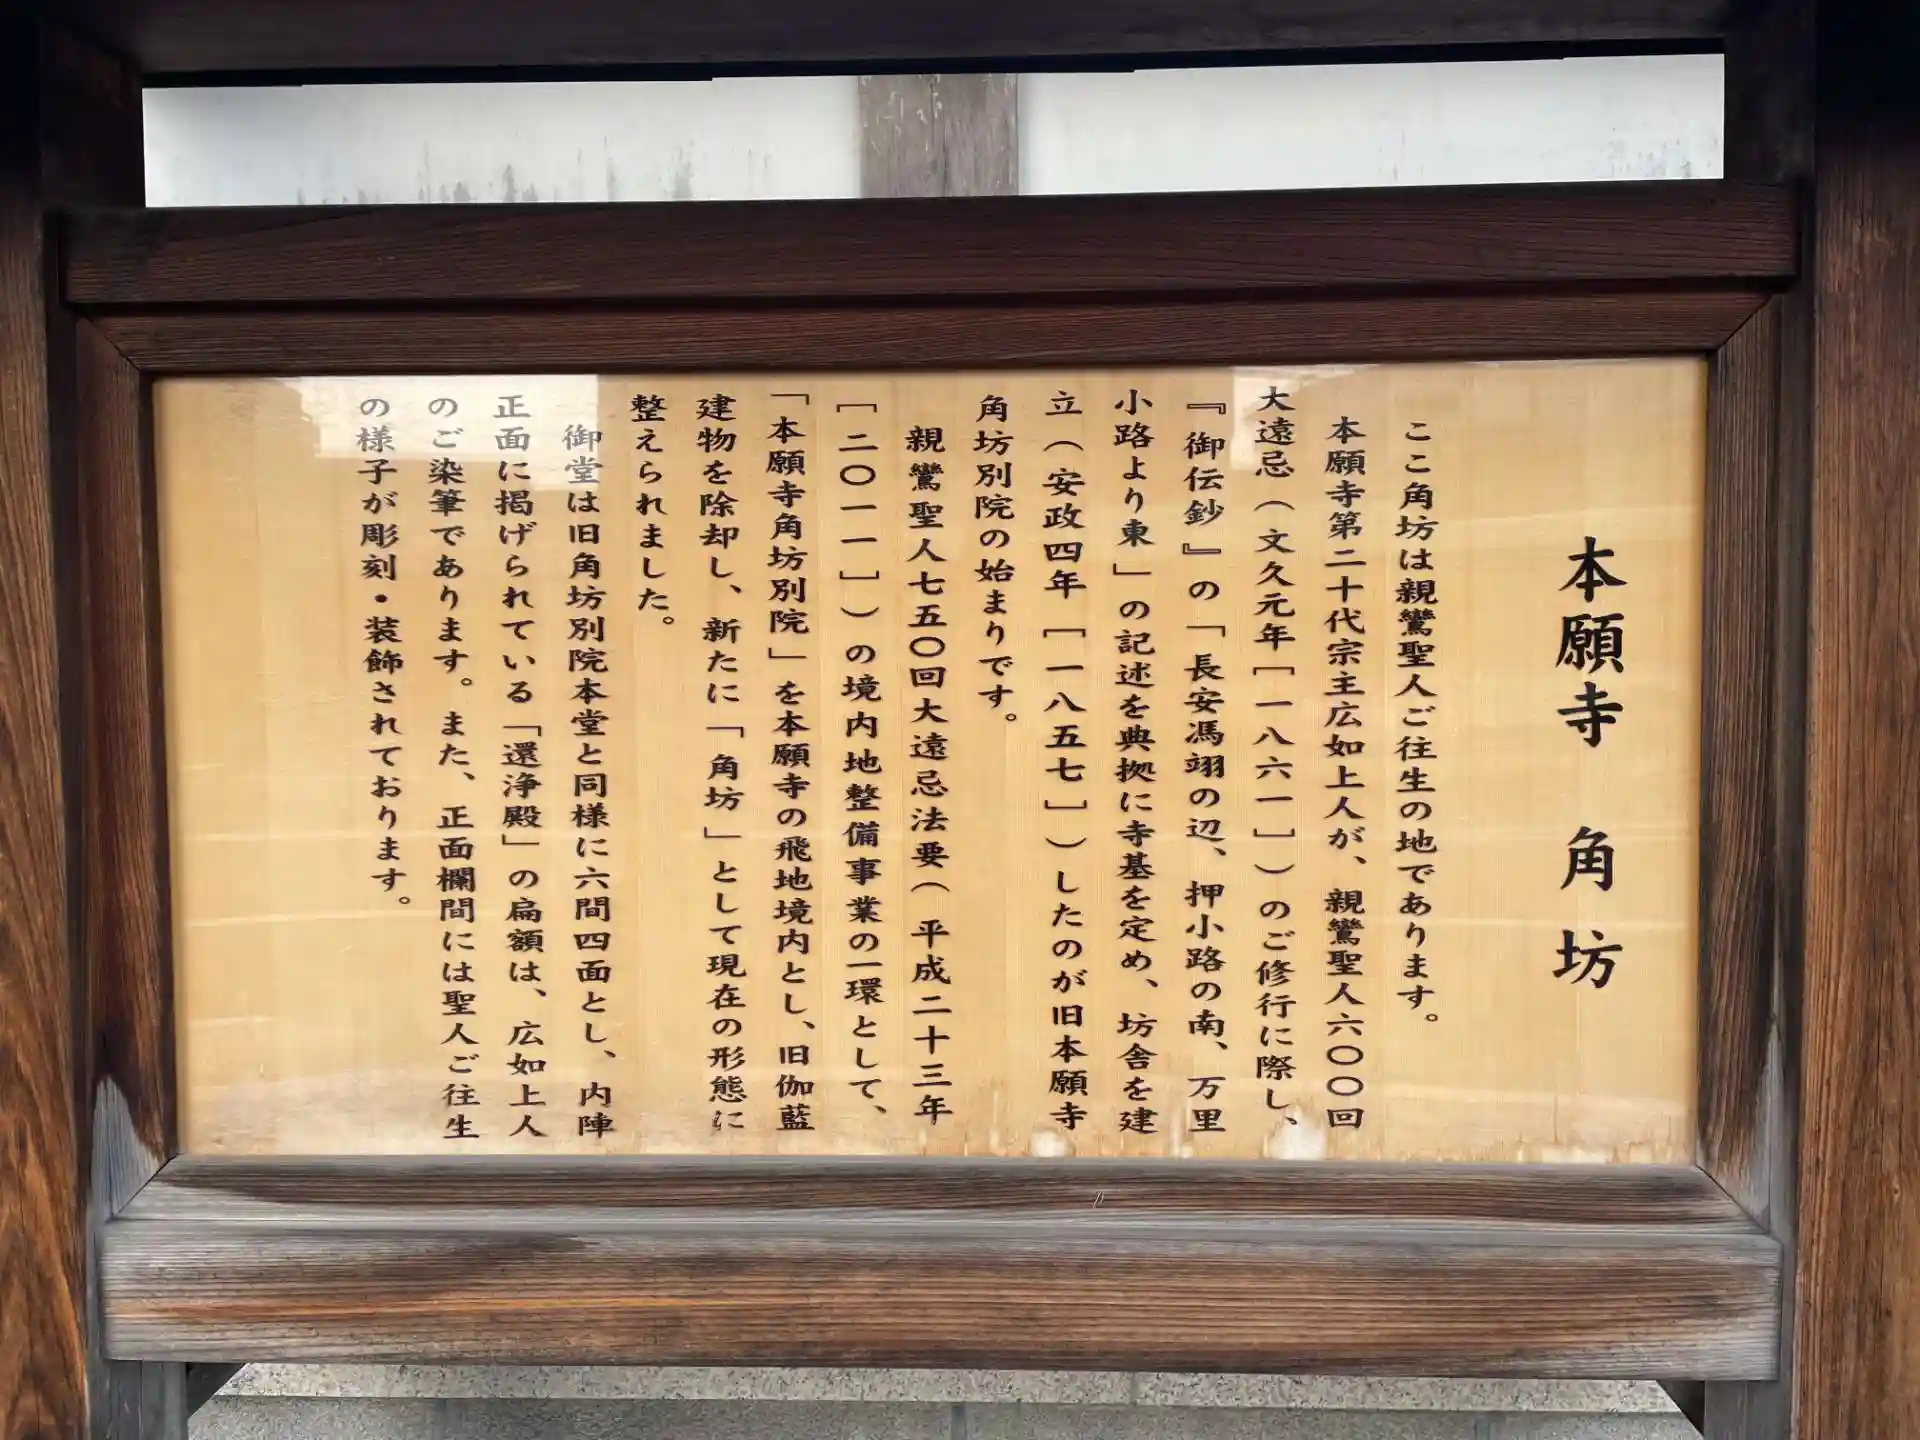 本願寺　角坊
ここ角坊は親鸞聖人ご往生の地であります。
本願寺第二十代宗主広如上人が、親鸞聖人六〇〇回
大遠忌（文久元年［一八六一］）のご修行に際し、
『御伝鈔』の「長安馮翊の辺、押小路の南、万里
小路より東」の記述を典拠に寺基を定め、坊舎を建
立（安政四年［一八五七］）したのが旧本願寺
角坊別院の始まりです。
親鸞聖人七五〇回大遠忌法要（平成二十三年
［二〇一一］）の境内地整備事業の一環として、
「本願寺角坊別院」を本願寺の飛地境内とし、旧伽藍
建物を除却し、新たに「角坊」として現在の形態に
整えられました。
御堂は旧角坊別院本堂と同様に六間四面とし、内陣
正面に掲げられている「還浄殿」の扁額は、広如上人
のご染筆であります。また、正面欄間には聖人ご往生
の様子が彫刻・装飾されております。